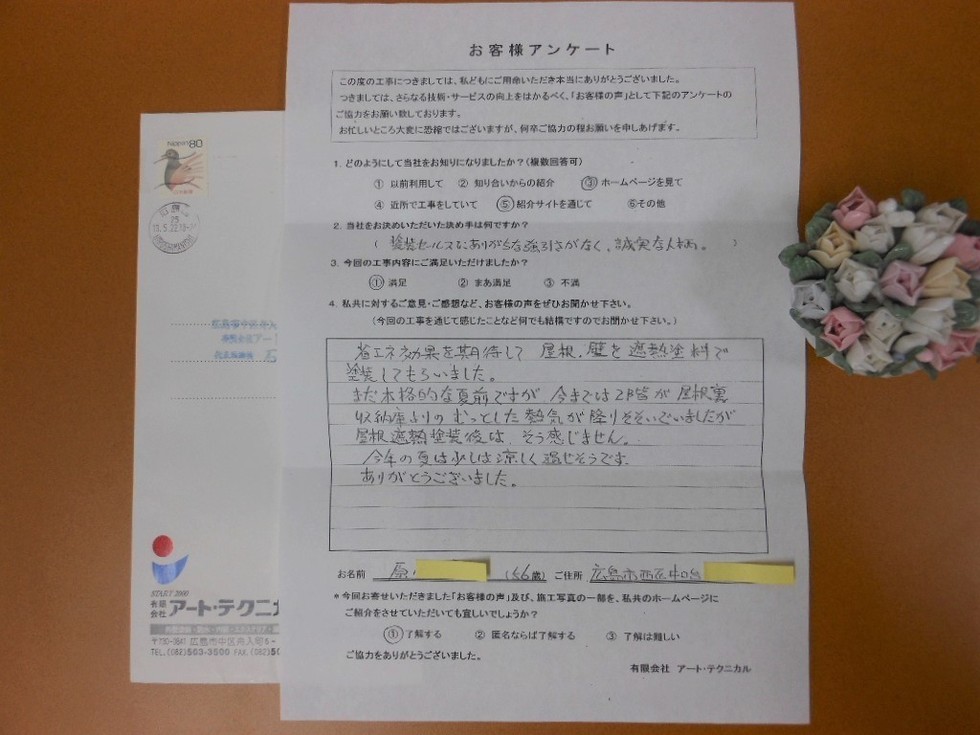 お客様アンケート
この度の工事につきましては、私どもにご用命いただき本当にありがとうございました。
つきましては、さらなる技術・サービスの向上をはかるべく、「お客様の声」として下記のアンケートの
ご協力をお願い致しております。
お忙しいところ大変に恐縮ではございますが、何卒ご協力の程お願いを申しあげます。
1. どのようにして当社をお知りになりましたか？(複数回答可)
① 以前利用して ② 知り合いからの紹介 ③ ホームページを見て
④ 近所で工事をしていて ⑤ 紹介サイトを通じて ⑥その他
2. 当社をお決めいただいた決め手は何ですか？
( 塗装セールスにありがちな強引さがなく、誠実な人柄。 )
3. 今回の工事内容にご満足いただけましたか？
① 満足 ② まあ満足 ③ 不満
4. 私共に対するご意見・ご感想など、お客様の声をぜひお聞かせ下さい。
(今回の工事を通じて感じたことなど何でも結構ですのでお聞かせ下さい。)
省エネ効果を期待して 屋根、壁を遮熱塗料で
塗装してもらいました。
まだ本格的な夏前ですが 今までは2階が屋根裏
収納庫よりの むっとした熱気が降りそそいでいましたが
屋根遮熱塗装後は、そう感じません。
今年の夏は少しは涼しく過じそうです
ありがとうございました。
お名前 原 (56歳) ご住所 広島市西区
＊今回お寄せいただきました「お客様の声」及び、施工写真の一部を、私共のホームページに
ご紹介をさせていただいても宜しいでしょうか？
① 了解する ② 匿名ならば了解する ③ 了解は難しい
ご協力をありがとうございました。
有限会社 アート・テクニカル
NIPPON 80
START 2000
有限会社 アート・テクニカ
〒730-0841 広島市中区舟入町6-
TEL.(082)503-3500 FAX.(082)50